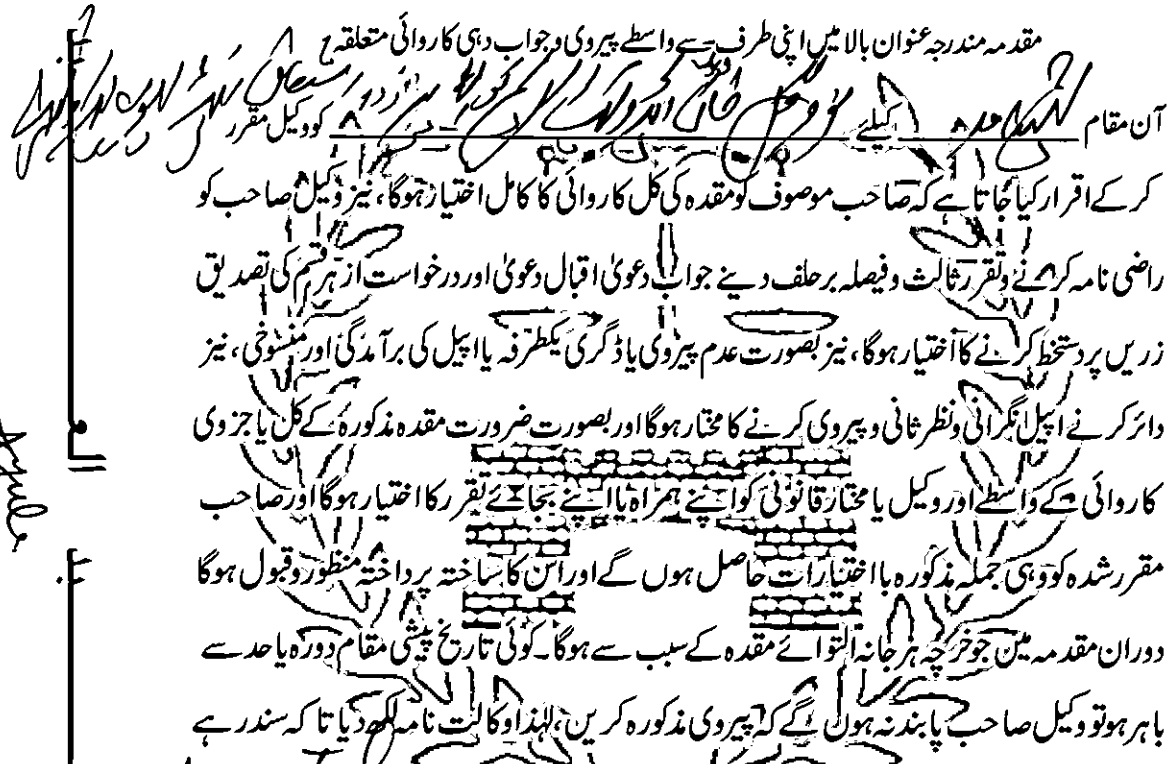 مقدمہ مندرجہ عنوان بالا میں اپنی طرف سے واسطے پیروی و جواب دہی کاروائی متعلقہ
آن مقام کیلئے کو وکیل مقرر
کر کے اقرار کیا جاتا ہے کہ صاحب موصوف کو مقدہ کی کل کاروائی کا کامل اختیار ہوگا، نیز وکیل صاحب کو
راضی نامہ کرنے وتقرر ثالث و فیصلہ بر حلف دینے جواب دعویٰ اقبال دعویٰ اور درخواست از ہر قسم کی تصدیق
زریں پر دستخط کرانے کا اختیار ہوگا، نیز بصورت عدم پیروی یا ڈگری یکطرفہ یا اپیل کی برآمدگی اور منسوخی، نیز
دائر کرنے اپیل نگرانی ونظر ثانی و پیروی کرنے کا مختار ہوگا اور بصورت ضرورت مقدہ مذکورہ کے کل یا جزوی
کاروائی کے واسطے اور وکیل یا مختار قانونی کو اپنے ہمراہ یا اپنے بجائے تقرر کا اختیار ہوگا اور صاحب
مقرر شدہ کو وہی جملہ مذکورہ با اختیارات حاصل ہوں گے اور اس کا ساختہ پرداختہ منظور و قبول ہوگا
دوران مقدمہ میں جو خرچہ ہرجانہ التوائے مقدہ کے سبب سے ہوگا۔ کوئی تاریخ پیشی مقام دورہ یا حد سے
باہر ہو تو وکیل صاحب پابند نہ ہوں گے کہ پیروی مذکورہ کریں، لہٰذا وکالت نامہ لکھ دیا تا کہ سند رہے